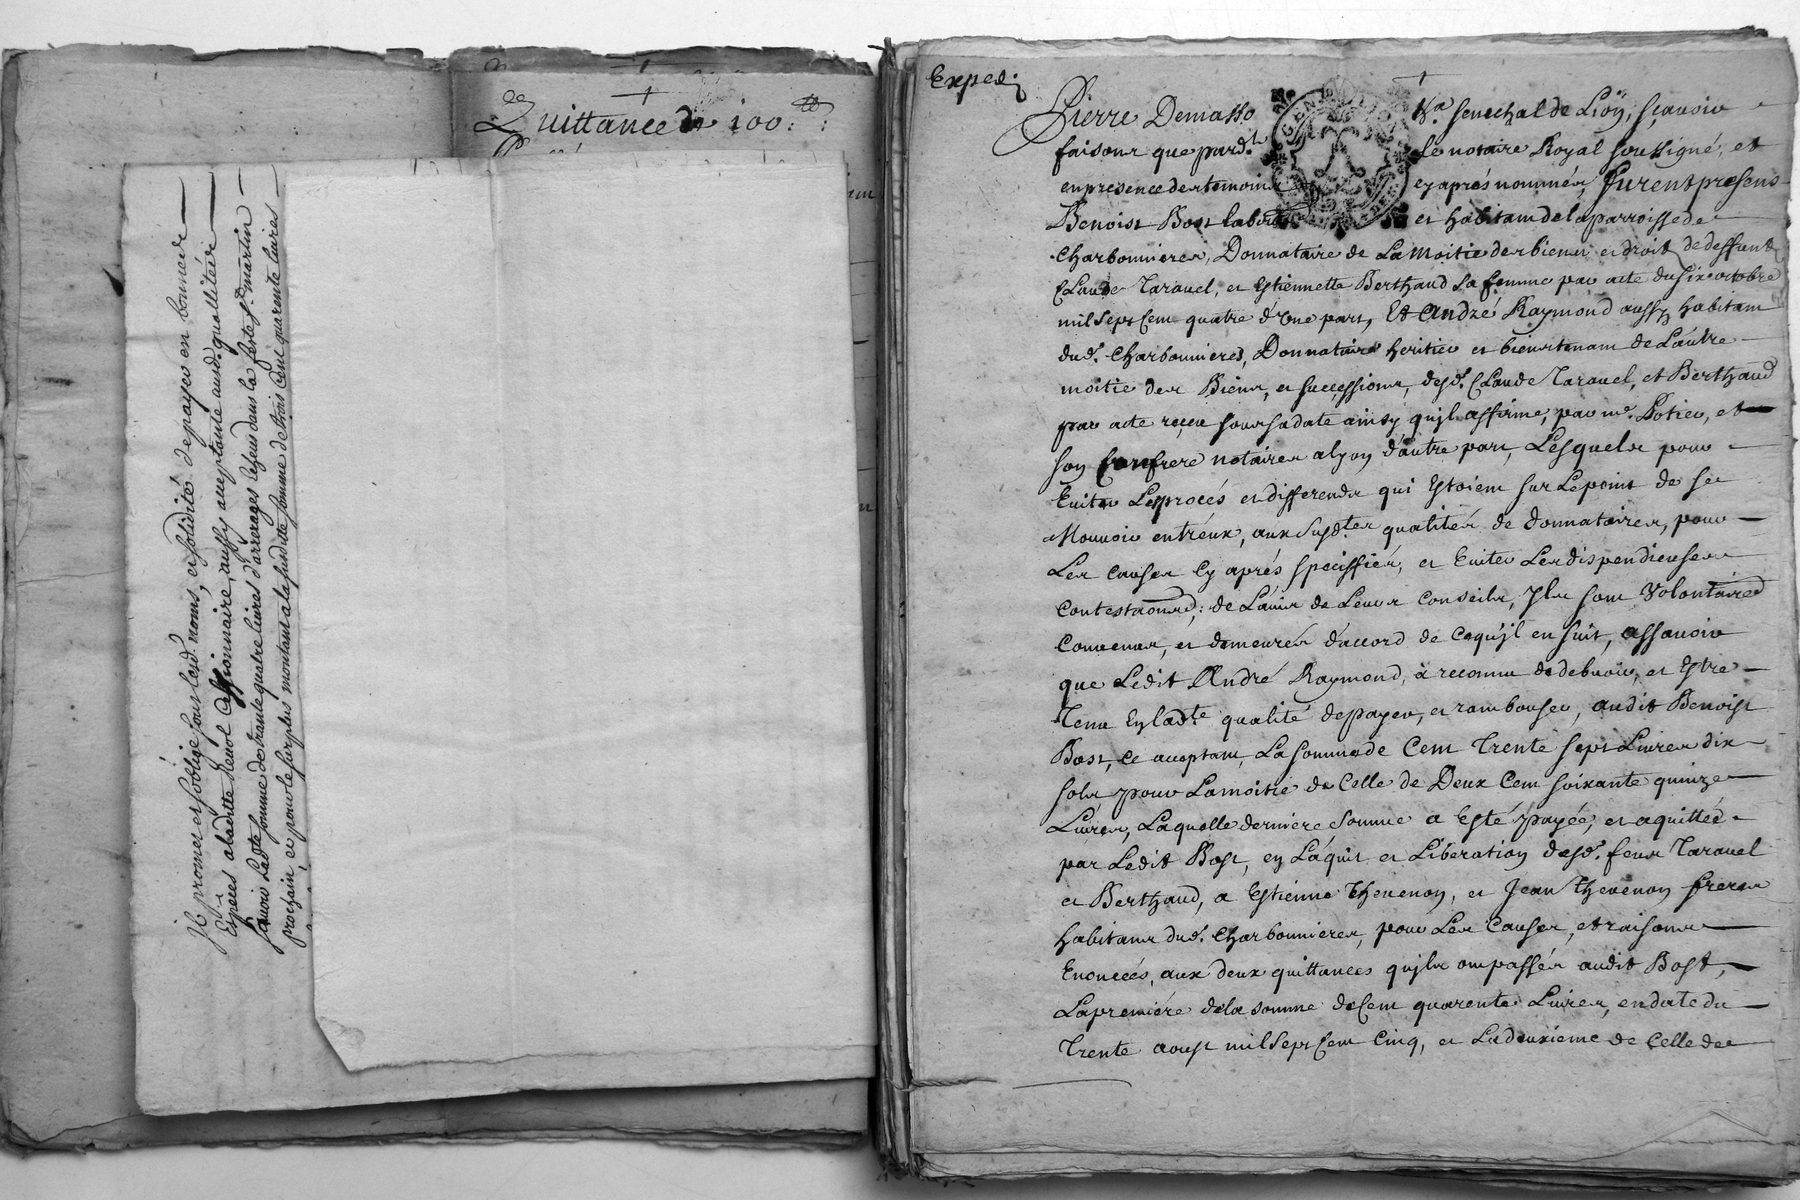 Quittance de 100.tt
Je promet et soblige sous lesd. noms, et solidité de payer en bonnes
Espèces aladitte Revol Cessionnaire, aussy acceptante ausd. quallitéés
sauoir Ladte somme de trante quatre liures d'arrerages Lesend dans la feste st. martin
prochain, et pour le surplus montant ala susditte somme de trois Cent quarente liures
Exped:
Pierre Demasso Sr. senechal de Lyon, sçauoir
faisons que pard.t le notaire Royal soussigné, et
en presence des temoins cy aprés nommés, furent presens
Benoist Bost labour et habitant de la parroisse de
Charbonnieres, Donnataire de La moitié des biens et droits de deffunts
Claude Tarauel, et Estiennette Berthaud sa femme par acte du six octobre
mil sept Cent quatre d'une part, Et André Raymond aussy habitant
dud. Charbonnieres, Donnataire heritier et bienstenant de L'autre
moitié des Biens, et successions, desd. Claude Tarauel, et Berthaud
par acte reçeu sous sa date ainsy qu'jl affirme, par me. Potier, et
son Confrere notaires a lyon d'autre part, Lesquels pour
Euiter Les procés et differends qui Estoient sur Le point de se
Mouuoir entréux, aux susd.tes qualités de Donnataires, pour
Les causes Cy aprés speciffiés, et Euiter Les dispendieuses
contestaons; de L'auis de Leurs Conseils, Jls sont Volontaire
Conuenus, et demeurés d'accord de Cequ'jl en suit, assauoir
que Ledit André Raymond, à reconnu de debuoir, et Estre
Tenu En lad.te qualité de payer, et rambourser, audit Benoist
Bost, Ce acceptant, La somme de Cent Trente sept Liures dix
sols pour La moitié de Celle de Deux Cent soixante quinze
Liures, Laquelle derniere somme a Esté payée, et aquittée
par Ledit Bost, en L'aquit et Liberation desd. feus Tarauel
et Berthaud, a Estienne Theuenon, et Jean Theuenon freres
habitans dud. Charbonnieres, pour Les Causes, et raisons
Enoncées, aux deux quittances qu'jls ont passés audit Bost,
La premiére de la somme de Cent quarente Liures, en date du
Trente aoust mil sept Cent Cinq, et La deuxiéme de Celle de